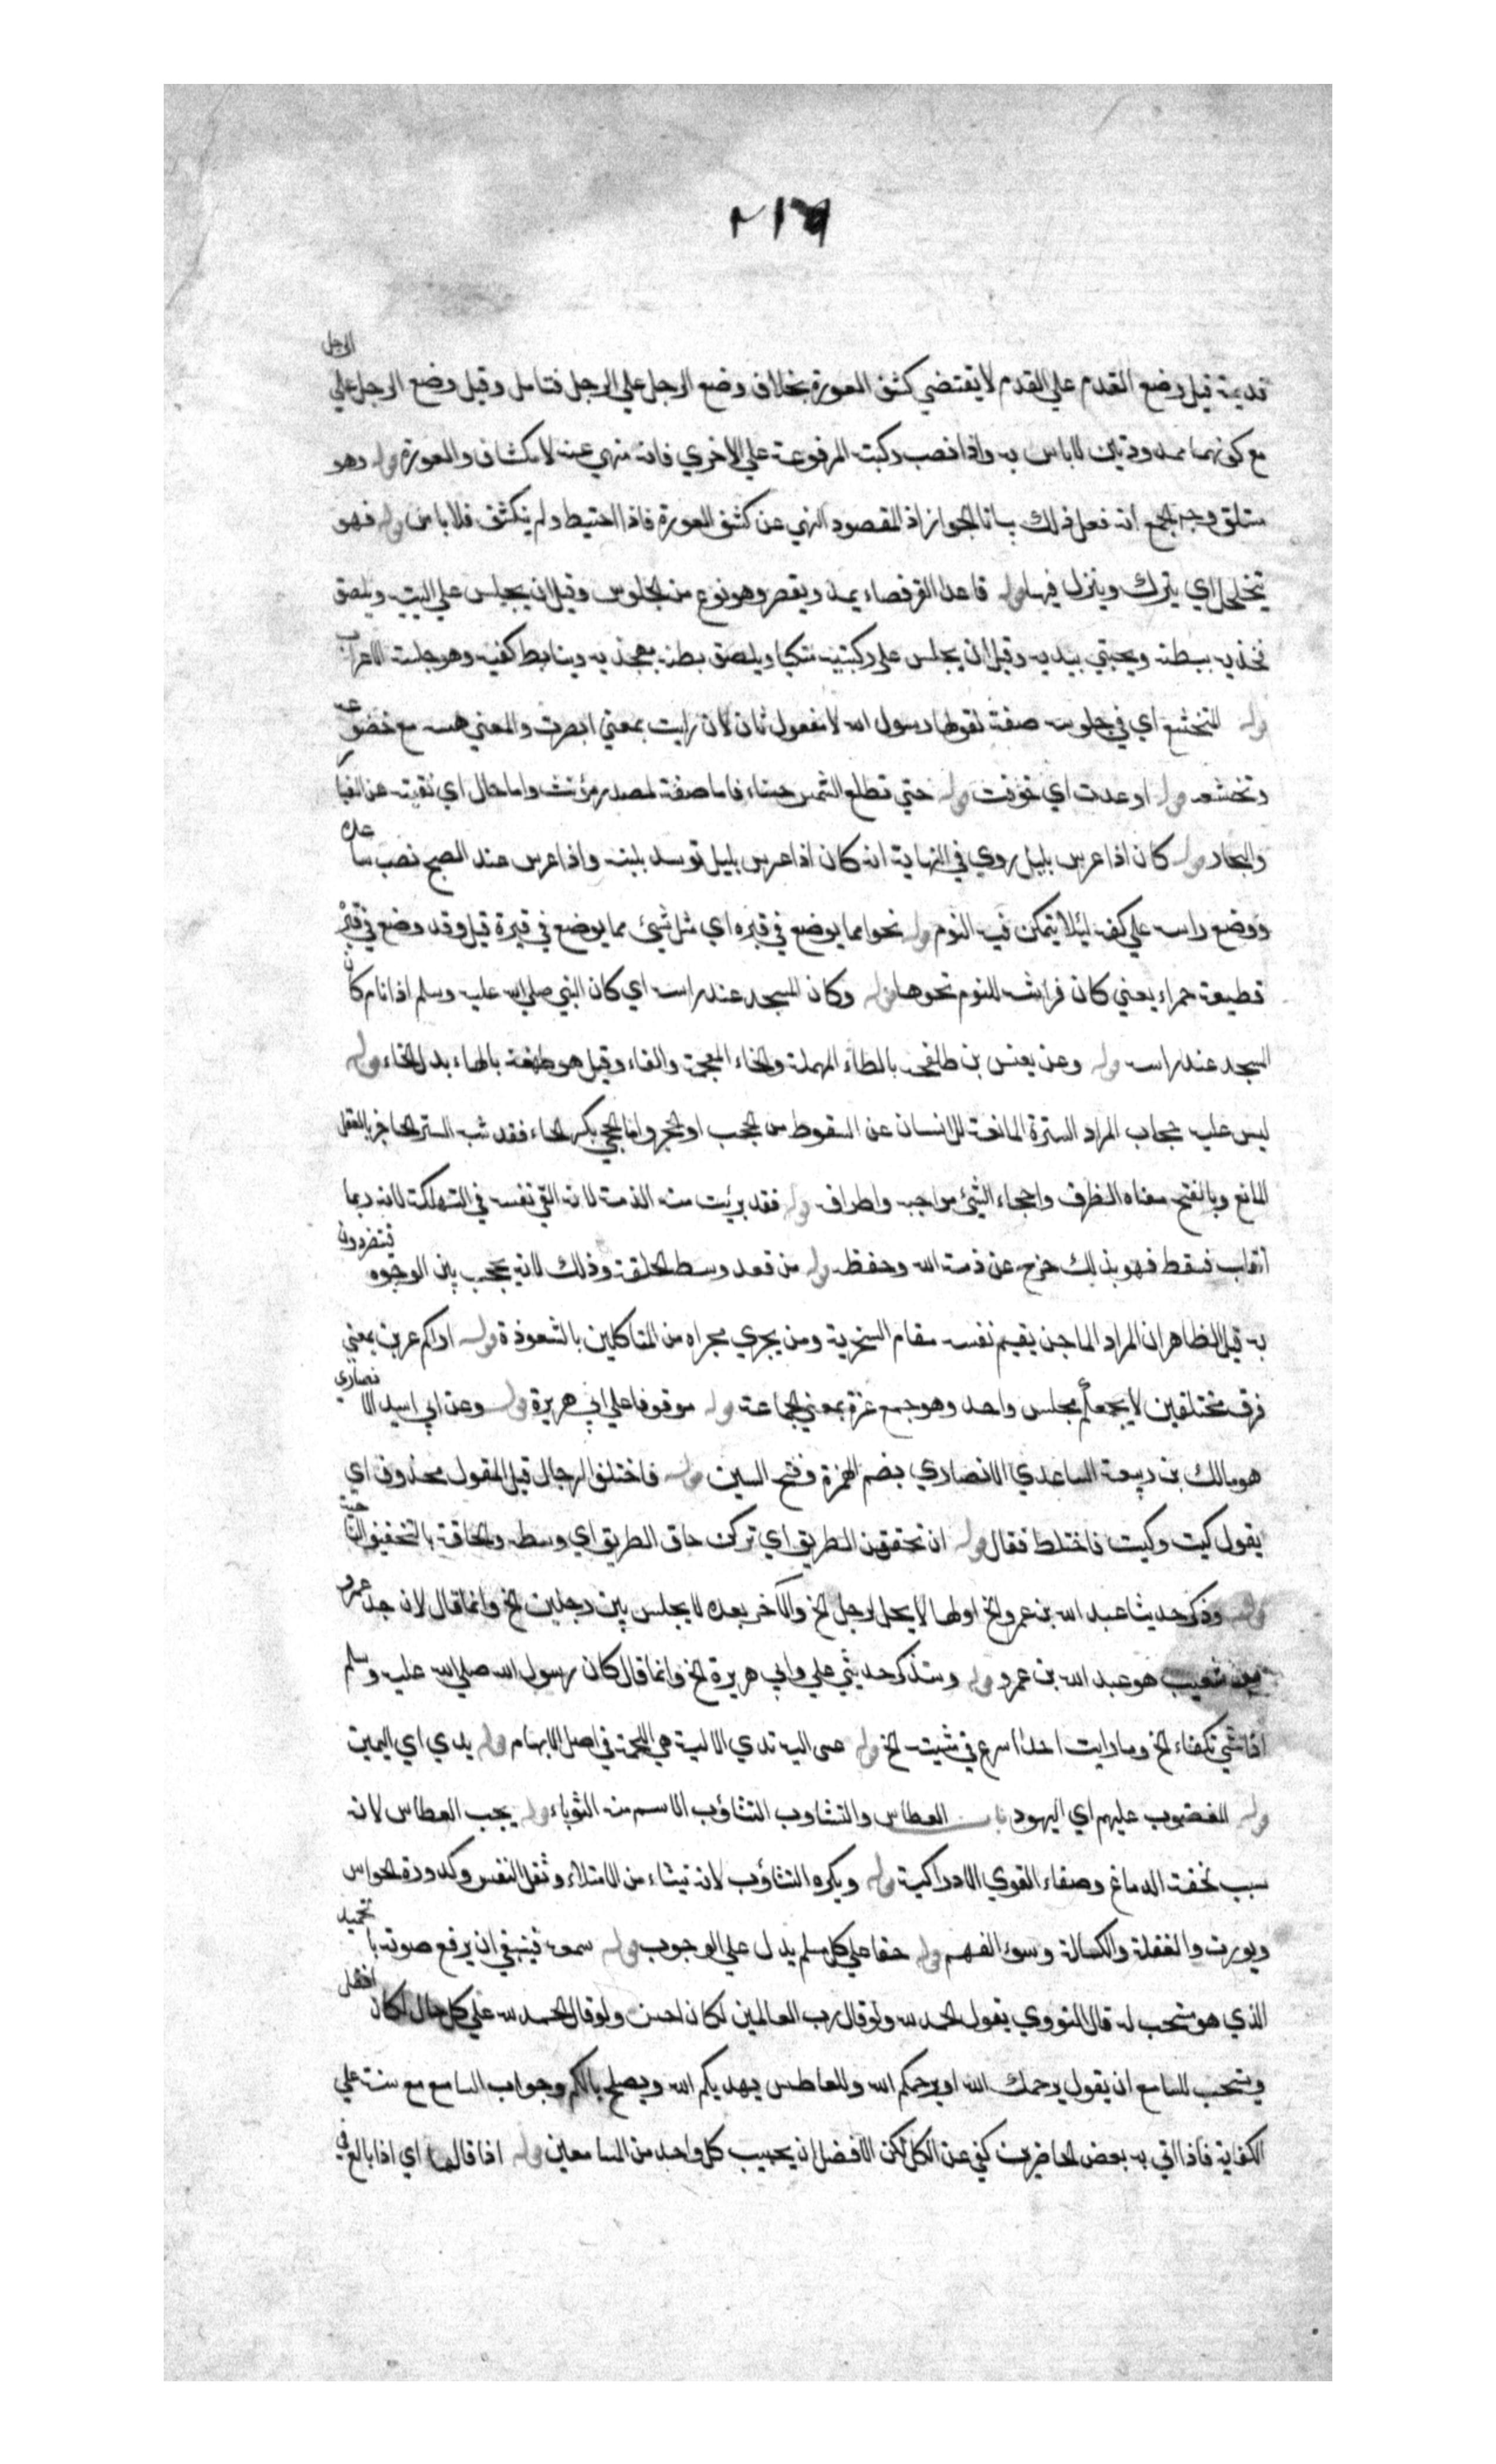 ٢١٦
قدميه قيل وضع القدم علي القدم لا يقتضي كشف العورة بخلاف وضع الرجل علي الرجل فتامل وقيل وضع الرجل علي الرجل
مع كونهما ممدودتين لا باس به واذا نصب ركبته المرفوعة علي الاخري فانه منهي عنه لانكشاف والعورة قوله وهو
مستلق وجه الجمع انه فعل ذلك بيانا للجواز اذ المقصود النهي عن كشف العورة فاذا احتيط ولم ينكشف فلا باس قوله فهو
يتجلجل اي يترك وينزل فيها قوله قاعدا القرفصاء يمد ويقصر وهو نوع من الجلوس وقيل ان يجلس علي اليتيه ويلصق
فخذيه ببطنه ويحتبي بيديه وقيل ان يجلس علي ركبتيه متكيا ويلصق بطنه بفخذيه ويتابط كفيه وهو جلسة الاعراب
قوله المتخشع اي في جلوسه صفة لقولها رسول الله لا مفعول ثان لان رايت بمعني ابصرت والمعني مع خضوعه
وتخشعه قوله ارعدت اي خوفت قوله حتي تطلع الشمس حسناء فاما صفة لمصدر مؤنث واما حال اي نقية عن الغبار
والبخار قوله كان اذا عرس بليل روي في النهاية انه كان اذا عرس بليل توسد لبنة واذا عرس عند الصبح نصب ساعده
ووضع راسه علي كفه ليلا يتمكن فيه النوم قوله نحوا مما يوضع في قبره اي مثل شيئ مما يوضع في قبره قيل وقد وضع في قبره
قطيفة حمراء يعني كان فراشه للنوم نحوها قوله وكان المسجد عند راسه اي كان النبي صلي الله عليه وسلم اذا نام كان
المسجد عند راسه قوله وعن يعيش بن طخفة بالطاء المهملة والخاء المعجمة والفاء وقيل هو طهفة بالهاء بدل الخاء قوله
ليس عليه حجاب المراد السترة المانعة للانسان عن السقوط من الحجب او الحجر واما الحجي بكسر الحاء فقد شبه الستر الحاجز بالعقل
المانع وبالفتح معناه الطرف واحجاء الشيئ نواحيه واطرافه قوله فقد برئت منه الذمة لانه القي نفسه في التهلكة لانه ربما
انقلب فسقط فهو بذلك خرج عن ذمة الله وحفظه قوله من قعد وسط الحلقة وذلك لانه يحجب بين الوجوه فيتضررون
به قيل الظاهر ان المراد الماجن يقيم نفسه مقام السخرية ومن يجري مجراه من المتاكلين بالشعوذة قوله اراكم عزين بمعني
فرق مختلفين لا يجمعكم مجلس واحد وهو جمع عزة بمعني الجماعة قوله موقوفا علي ابي هريرة قوله وعن ابي اسيد الانصاري
هو مالك بن ربيعة الساعدي الانصاري بضم الهمزة وفتح السين قوله فاختلط الرجال قيل المقول محذوف اي
يقول كيت وكيت فاختلط فقال قوله ان تحققن الطريق اي تركن حاق الطريق اي وسطه والحافة بالتخفيف الناحية
قوله وذكر حديثا عبد الله بن عمرو الخ اولها لا يحل لرجل الخ والآخر بعده لا يجلس بين رجلين الخ وانما قال لان جد عمرو
بن شعيب هو عبد الله بن عمرو قوله وستذكر حديثي علي وابي هريرة الخ وانما قال كان رسول الله صلي الله عليه وسلم
اذا مشي تكفاء الخ وما رايت احدا اسرع في مشيته الخ قوله علي الية يدي الالية هي اللحمة في اصل الابهام قوله يدي اي اليمين
قوله المغضوب عليهم اي اليهود باب العطاس والتثاوب التثاؤب الاسم منه الثوباء قوله يحب العطاس لانه
سبب لخفة الدماغ وصفاء القوي الادراكية قوله ويكره التثاؤب لانه ينشاء من الامتلاء وثقل النفس وكدورة الحواس
ويورث والغفلة والكسالة وسوء الفهم قوله حقا علي كل مسلم يدل علي الوجوب قوله سمعه فينبغي ان يرفع صوته بالتحميد
الذي هو مستحب له قال النووي يقول الحمد لله ولو قال رب العالمين لكان احسن ولو قال الحمد لله علي كل حال لكان افضل
ويستحب للسامع ان يقول يرحمك الله او يرحمكم الله وللعاطس يهديكم الله ويصلح بالكم وجواب السامع مع سنة علي
الكفاية فاذا اتي به بعض الحاضرين كفي عن الكل لكن الافضل ان يجيب كل واحد من السامعين قوله اذا قال ها اي اذا بالغ في